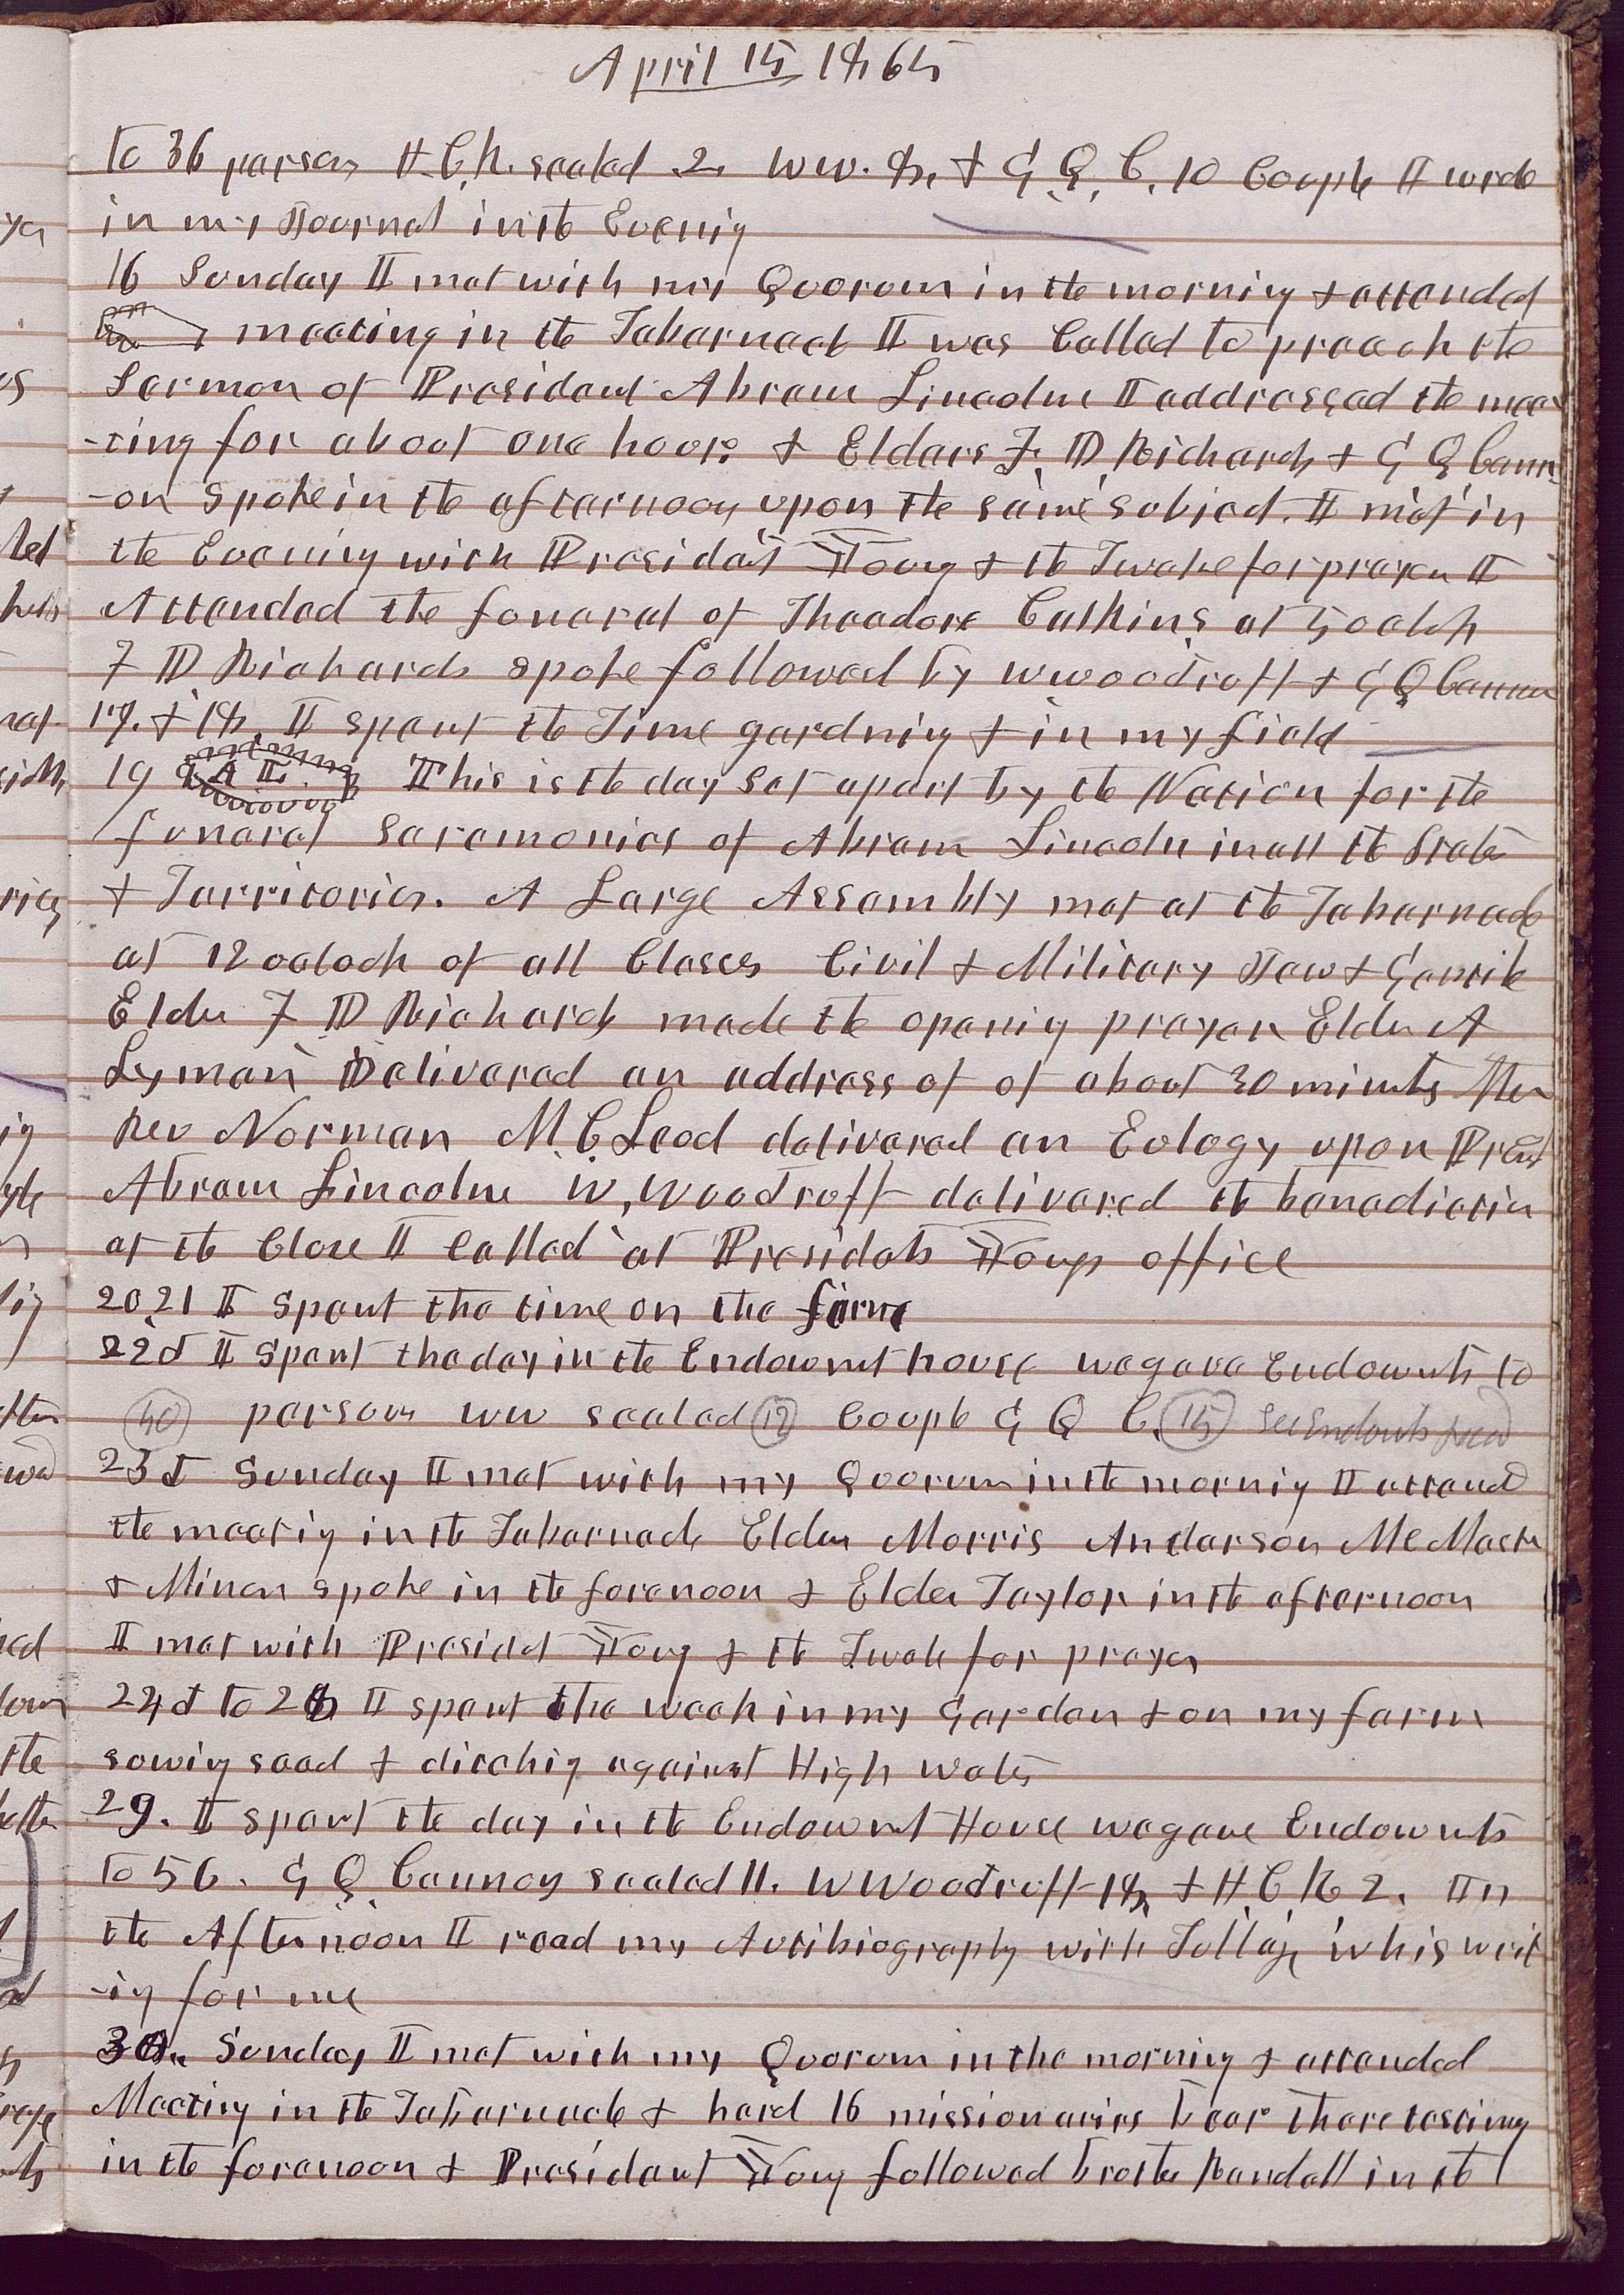 April 15 1865
to 36 persons H.C.K. sealed 2. W W. 8, & G Q, C, 10 Couple I wrote
in my Journal in the Evenig
16 Sunday I met with my Quorum in the morning & attended
meeting in the Tabernacle I was Called to preach the
Sermon of President Abram Lincoln I addressed the mee-
-ting for about one hour & Elders F. D Richards & G Q Cann-
-on spoke in the afternoon upon the same subject. I met in
the Evening with President Young & the Twelve for prayer I
Attended the funeral of Theodore Calkins at 5 oclock
F D Richards spoke followed by W Woodruff & G Q Cannon
17. & 18. I spent the Time gardnig & in my field
19 This is the day Set apart by the Nation for the
funeral Saremonies of Abram Lincoln in all the States
& Territories. A Large Assembly met at the Tabernacle
at 12 ocloch of all Classes Civil & Military Jew & Gentile
Elder F D Richards made the opening prayer Elder A
Lyman Delivered an address of of about 30 minuts then
Rev Norman McLeod delivered an Eulogy upon Presdt
Abram Lincoln W, Woodruff delivered the benediction
at the Close I Called at Presidets Youngs office
20 21 I spent the time on the farm
22d I spent the day in the Endowmet house we gave Endowmts to
40 persons WW sealed 12 Couple G Q C. 15
23d Sunday I met with my Quorum in the mornig I attend
the meetig in the Tabernacle Elders Morris Anderson McMaster
& Miner spoke in the forenoon & Elder Taylor in the afternoon
I met with Presidet Young & the Twelve for prayer
24d to 28 I spent the week in my Garden & on my farm
sowig seed & ditchig against High water
29. I spent the day in the Endowmt House we gave Endowmts
to 56. G Q Cannon sealed 11. W Woodruff 18, & H C K 2. In
the Afternoon I read my Autibiography with Tullige whis writ
-ig for me
30. Sunday I met with my Quorum in the morning & attended
Meeting in the Tabernacle & hard 16 missionaries bear there testimny
in the forenoon & President Young followed Broter Randall in the